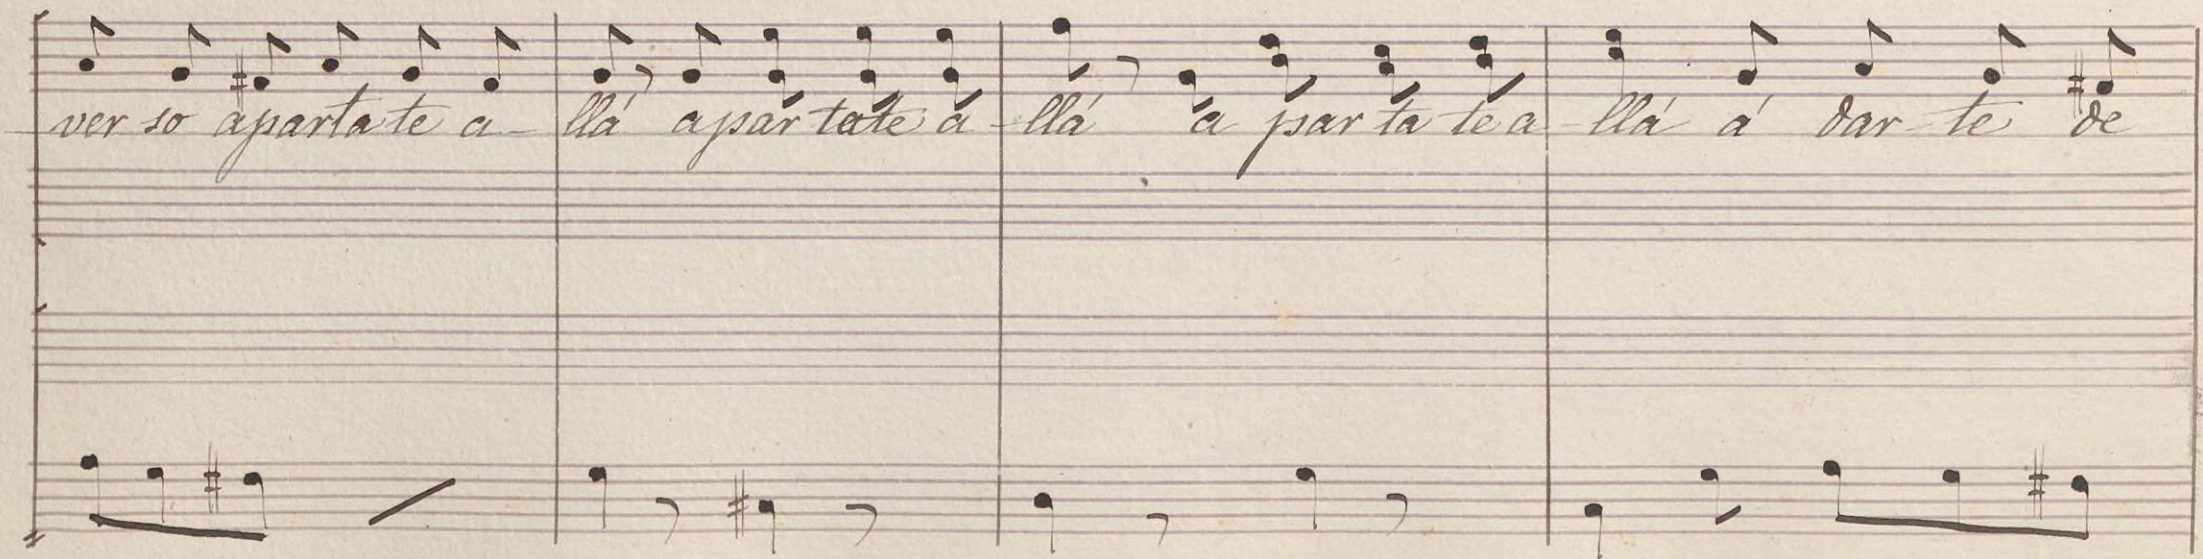 ver so apartate a- llá apartate a-llá a partatea llá á dar-te de